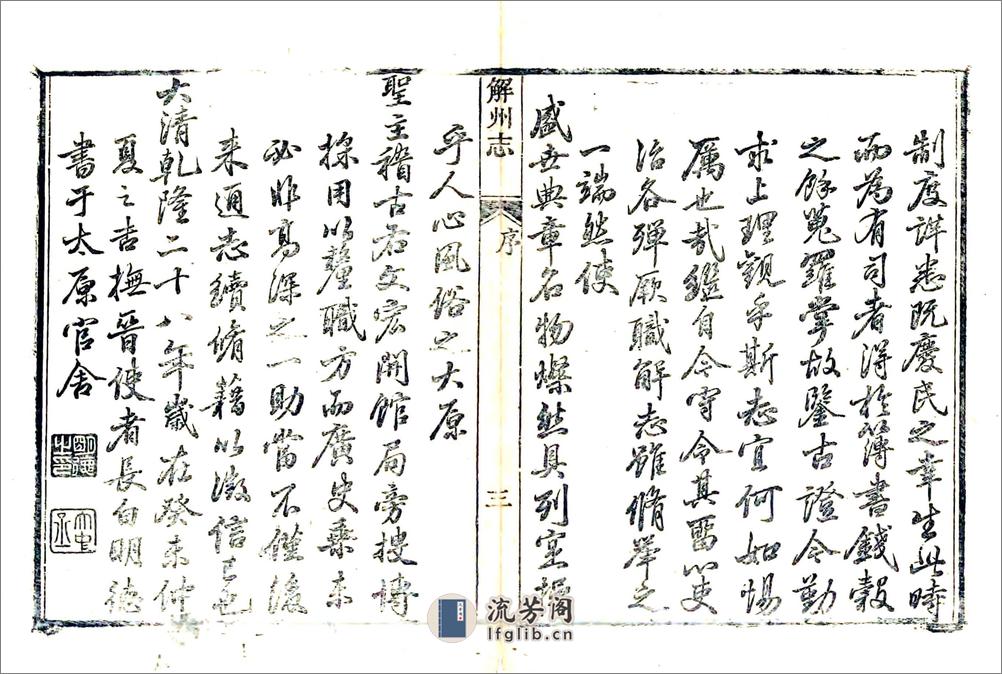 制度詳悉既慶民之幸生此時
而為有司者得於簿書錢穀
之餘蒐羅掌故鑒古證今勤
求上理觀乎斯志宜何如惕
厲也哉繼自今守令其留心吏
治各殫厥職解志雖脩舉之
一端然使
盛世典章名物燦然具列寔握
解州志
序
三
乎人心風俗之大原
聖主稽古右文宏開館局旁搜博
採用以釐職方而廣史乗未
必非高深之一助當不僅後
来通志續脩藉以徵信已也
大清乾隆二十八年歲在癸未仲
夏之吉撫晉使者長白明德
書于太原官舍
明德之印
流芳阁
lfglib.cn